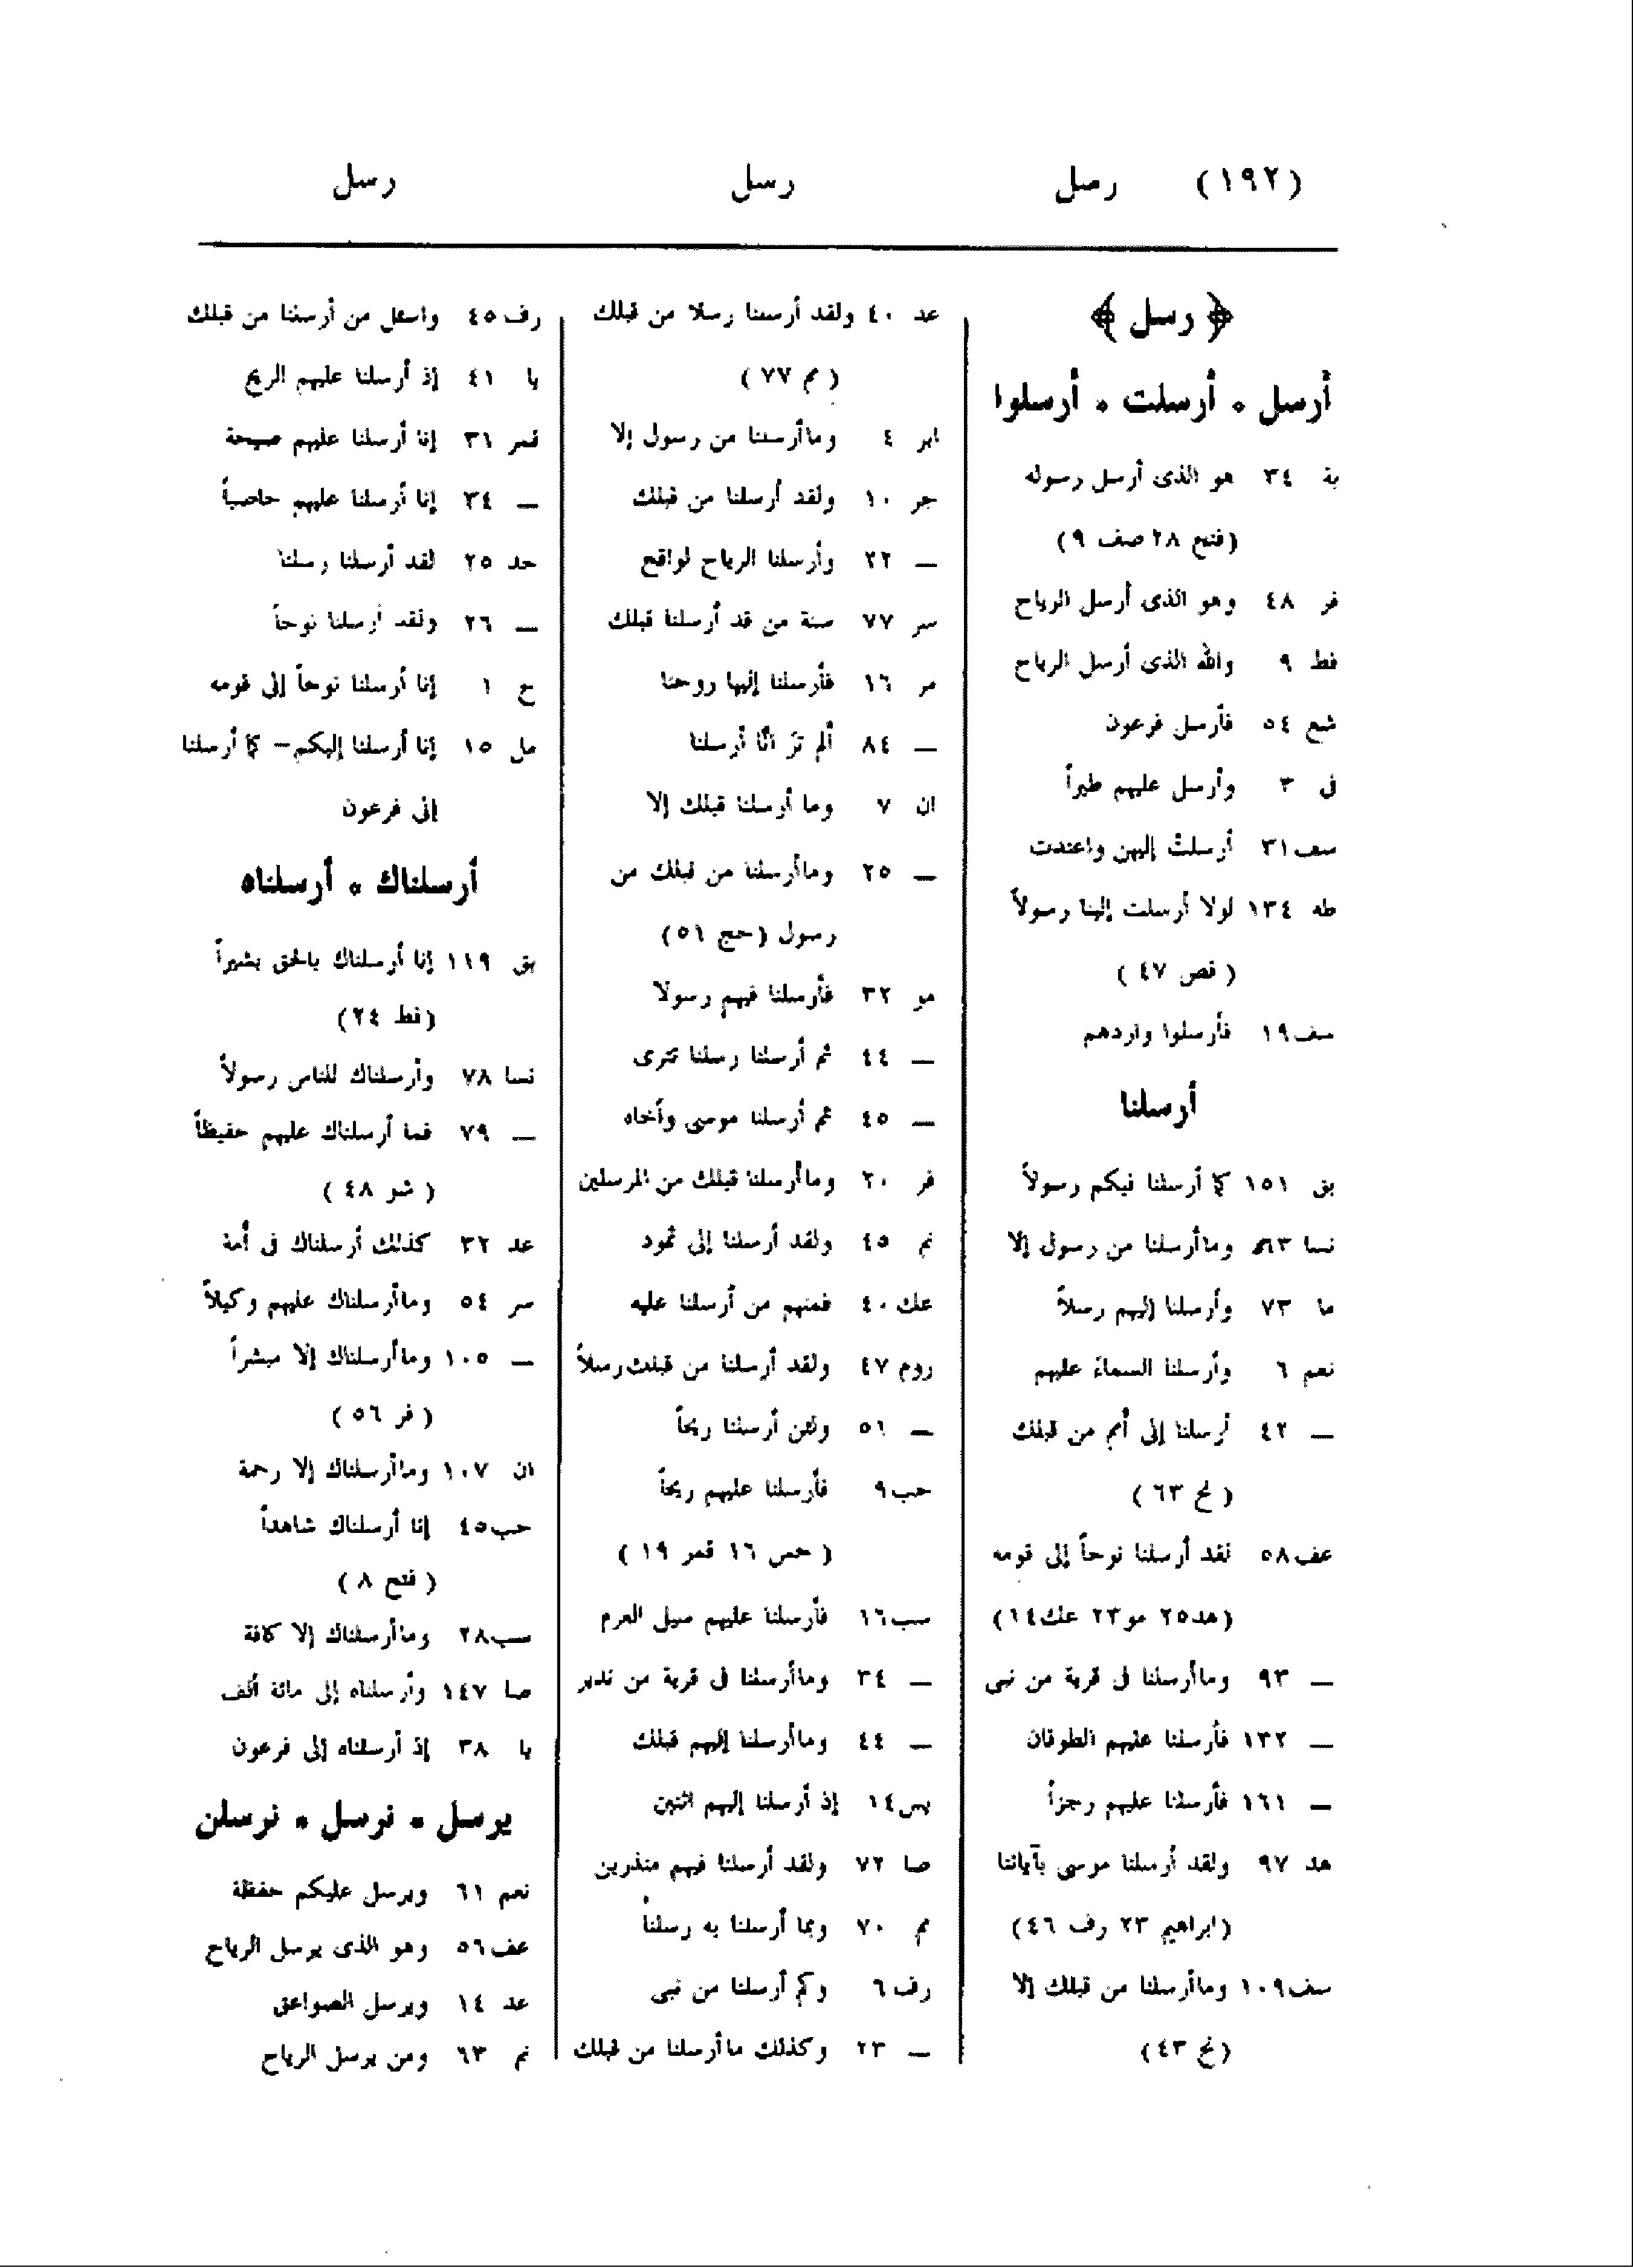 (١٩٢) رسل رسل رسل
﴿ رسل ﴾
أرسل ۰ أرسلت ۰ أرسلوا
بة ٣٤ هو الذى أرسل رسوله
(فتح ٢٨ صف ٩)
فر ٤٨ وهو الذى أرسل الرياح
فط ٩ والله الذى أرسل الرياح
شع ٥٤ فأرسل فرعون
فى ٣ وأرسل عليهم طيراً
سف ٣١ أرسلتْ إليهن واعتدت
طه ١٣٤ لولا أرسلت إلينا رسولاً
(قص ٤٧)
سف ١٩ فأرسلوا واردهم
أرسلنا
بق ١٥١ كما أرسلنا فيكم رسولاً
نسا ٦٣ وما أرسلنا من رسول إلا
ما ٧٣ وأرسلنا إليهم رسلاً
نعم ٦ وأرسلنا السماءَ عليهم
— ٤٢ أرسلنا إلى أمم من قبلك
(نح ٦٣)
عف ٥٨ لقد أرسلنا نوحاً إلى قومه
(هد ٢٥ مو ٢٣ عك ١٤)
— ٩٣ وما أرسلنا فى قرية من نبى
— ١٣٢ فأرسلنا عليهم الطوفان
— ١٦١ فأرسلنا عليهم رجزاً
هد ٩٧ ولقد أرسلنا موسى بآياتنا
(ابراهيم ٢٣ رف ٤٦)
سف ١٠٩ وما أرسلنا من قبلك إلا
(نح ٤٣)
عد ٤٠ ولقد أرسلنا رسلا من قبلك
(مم ٧٧)
ابر ٤ وما أرسلنا من رسول إلا
جر ١٠ ولقد أرسلنا من قبلك
— ٢٢ وأرسلنا الرياح لواقع
سر ٧٧ سنة من قد أرسلنا قبلك
مر ١٦ فأرسلنا إليها روحنا
— ٨٤ ألم ترَ أنَّا أرسلنا
ان ٧ وما أرسلنا قبلك إلا
— ٢٥ وما أرسلنا من قبلك من
رسول (حج ٥١)
مو ٣٢ فأرسلنا فيهم رسولا
— ٤٤ ثم أرسلنا رسلنا تترى
— ٤٥ ثم أرسلنا موسى وأخاه
فر ٢٠ وما أرسلنا قبلك من المرسلين
نم ٤٥ ولقد أرسلنا إلى ثمود
عك ٤٠ فمنهم من أرسلنا عليه
روم ٤٧ ولقد أرسلنا من قبلك رسلاً
— ٥١ ولئن أرسلنا ريحاً
حب ٩ فأرسلنا عليهم ريحاً
(حس ١٦ قمر ١٩)
سب ١٦ فأرسلنا عليهم سيل العرم
— ٣٤ وما أرسلنا فى قرية من نذير
— ٤٤ وما أرسلنا إليهم قبلك
يس ١٤ إذ أرسلنا إليهم اثنين
صا ٧٢ ولقد أرسلنا فيهم منذرين
مم ٧٠ وبما أرسلنا به رسلنا
رف ٦ وكم أرسلنا من نبى
— ٢٣ وكذلك ما أرسلنا من قبلك
رف ٤٥ واسئل من أرسلنا من قبلك
يا ٤١ إذ أرسلنا عليهم الريح
قمر ٣١ إنا أرسلنا عليهم صيحة
— ٣٤ إنا أرسلنا عليهم حاصباً
حد ٢٥ لقد أرسلنا رسلنا
— ٢٦ ولقد أرسلنا نوحاً
ح ١ إنا أرسلنا نوحاً إلى قومه
مل ١٥ إنا أرسلنا إليكم – كما أرسلنا
إلى فرعون
أرسلناك ۰ أرسلناه
بق ١١٩ إنا أرسلناك بالحق بشيراً
(فط ٢٤)
نسا ٧٨ وأرسلناك للناس رسولاً
— ٧٩ فما أرسلناك عليهم حفيظاً
(شو ٤٨)
عد ٣٢ كذلك أرسلناك فى أمة
سر ٥٤ وما أرسلناك عليهم وكيلاً
— ١٠٥ وما أرسلناك إلا مبشراً
(فر ٥٦)
ان ١٠٧ وما أرسلناك إلا رحمة
حب ٤٥ إنا أرسلناك شاهداً
(فتح ٨)
سب ٢٨ وما أرسلناك إلا كافة
صا ١٤٧ وأرسلناه إلى مائة ألف
يا ٣٨ إذ أرسلناه إلى فرعون
يرسل ۰ نرسل ۰ نرسلن
نعم ٦١ ويرسل عليكم حفظة
عف ٥٦ وهو الذى يرسل الرياح
عد ١٤ ويرسل الصواعق
نم ٦٣ ومن يرسل الرياح